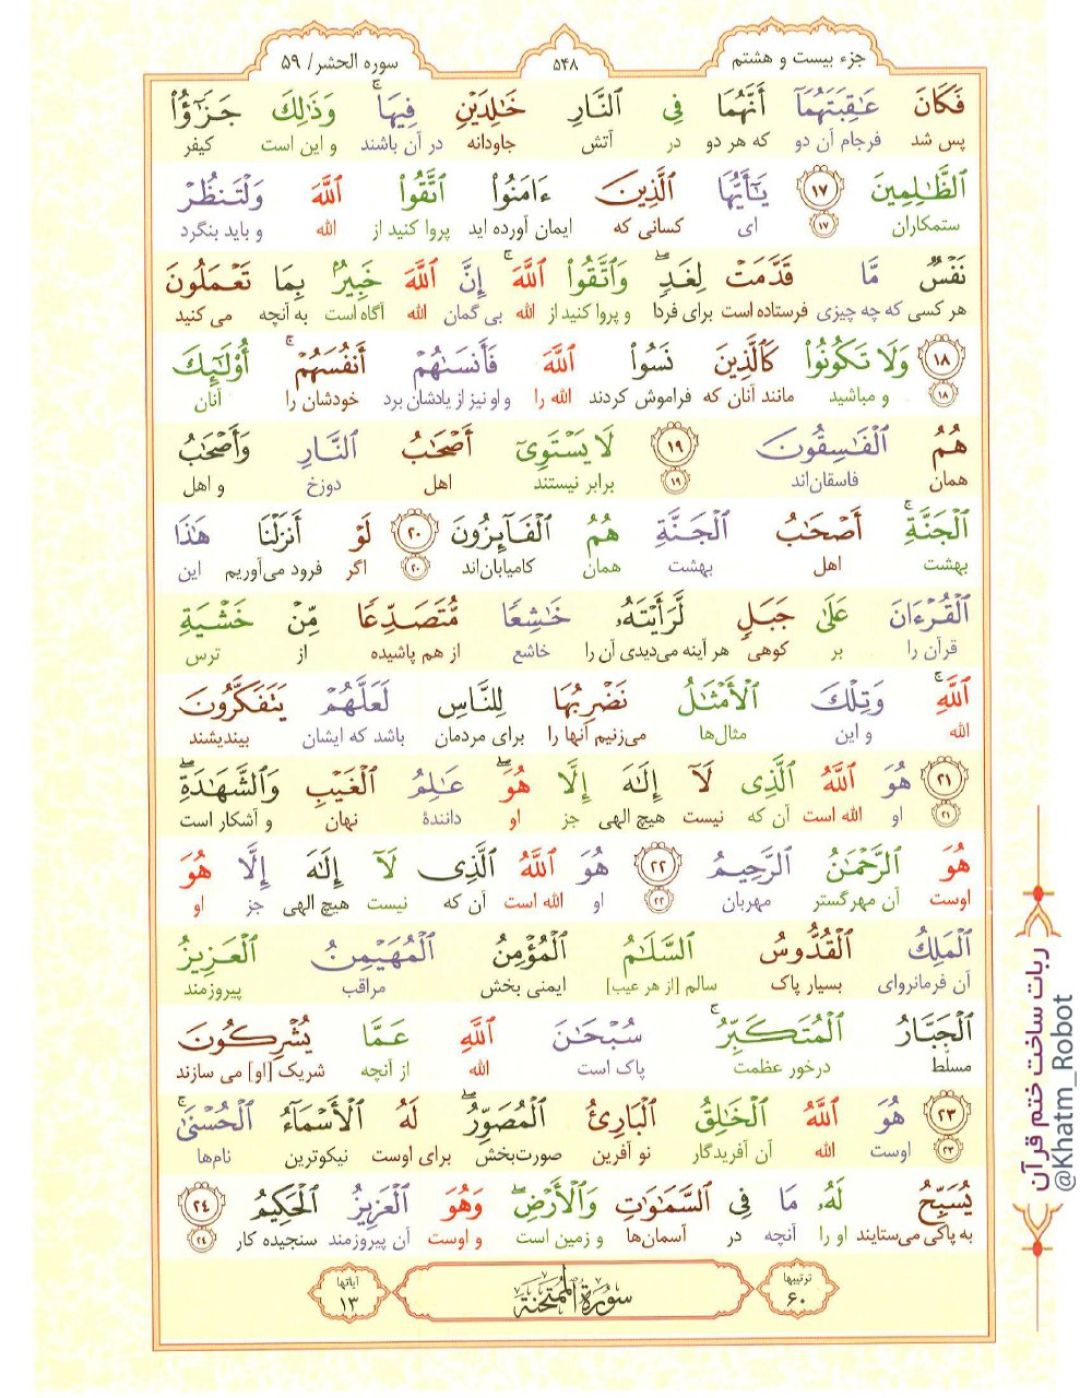 جزء بیست و هشتم
۵۴۸
سوره الحشر/ ۵۹
فَكَانَ عَٰقِبَتَهُمَآ أَنَّهُمَا فِي ٱلنَّارِ خَٰلِدَيۡنِ فِيهَاۚ وَذَٰلِكَ جَزَٰٓؤُاْ
پس شد فرجام آن دو که هر دو در آتش جاودانه در آن باشند و این است کیفر
ٱلظَّٰلِمِينَ ١٧ يَٰٓأَيُّهَا ٱلَّذِينَ ءَامَنُواْ ٱتَّقُواْ ٱللَّهَ وَلۡتَنظُرۡ
ستمکاران ۱۷ ای کسانی که ایمان آورده اید پروا کنید از الله و باید بنگرد
نَفۡسٞ مَّا قَدَّمَتۡ لِغَدٖۖ وَٱتَّقُواْ ٱللَّهَۚ إِنَّ ٱللَّهَ خَبِيرُۢ بِمَا تَعۡمَلُونَ
هر کسی که چه چیزی فرستاده است برای فردا و پروا کنید از الله بی گمان الله آگاه است به آنچه می کنید
١٨ وَلَا تَكُونُواْ كَٱلَّذِينَ نَسُواْ ٱللَّهَ فَأَنسَىٰهُمۡ أَنفُسَهُمۡۚ أُوْلَٰٓئِكَ
۱۸ و مباشید مانند آنان که فراموش کردند الله را و او نیز از یادشان برد خودشان را آنان
هُمُ ٱلۡفَٰسِقُونَ ١٩ لَا يَسۡتَوِيٓ أَصۡحَٰبُ ٱلنَّارِ وَأَصۡحَٰبُ
همان فاسقان‌اند ۱۹ برابر نیستند اهل دوزخ و اهل
ٱلۡجَنَّةِۚ أَصۡحَٰبُ ٱلۡجَنَّةِ هُمُ ٱلۡفَآئِزُونَ ٢٠ لَوۡ أَنزَلۡنَا هَٰذَا
بهشت اهل بهشت همان کامیابان‌اند ۲۰ اگر فرود می‌آوریم این
ٱلۡقُرۡءَانَ عَلَىٰ جَبَلٖ لَّرَأَيۡتَهُۥ خَٰشِعٗا مُّتَصَدِّعٗا مِّنۡ خَشۡيَةِ
قرآن را بر کوهی هر آینه می‌دیدی آن را خاشع از هم پاشیده از ترس
ٱللَّهِۚ وَتِلۡكَ ٱلۡأَمۡثَٰلُ نَضۡرِبُهَا لِلنَّاسِ لَعَلَّهُمۡ يَتَفَكَّرُونَ
الله و این مثال‌ها می‌زنیم آنها را برای مردمان باشد که ایشان بیندیشند
٢١ هُوَ ٱللَّهُ ٱلَّذِي لَآ إِلَٰهَ إِلَّا هُوَۖ عَٰلِمُ ٱلۡغَيۡبِ وَٱلشَّهَٰدَةِۖ
۲۱ او الله است آن که نیست هیچ الهی جز او دانندۀ نهان و آشکار است
هُوَ ٱلرَّحۡمَٰنُ ٱلرَّحِيمُ ٢٢ هُوَ ٱللَّهُ ٱلَّذِي لَآ إِلَٰهَ إِلَّا هُوَ
اوست آن مهرگستر مهربان ۲۲ او الله است آن که نیست هیچ الهی جز او
ٱلۡمَلِكُ ٱلۡقُدُّوسُ ٱلسَّلَٰمُ ٱلۡمُؤۡمِنُ ٱلۡمُهَيۡمِنُ ٱلۡعَزِيزُ
آن فرمانروای بسیار پاک سالم [از هر عیب] ایمنی بخش مراقب پیروزمند
ٱلۡجَبَّارُ ٱلۡمُتَكَبِّرُۚ سُبۡحَٰنَ ٱللَّهِ عَمَّا يُشۡرِكُونَ
مسلّط درخور عظمت پاک است الله از آنچه شریک [او] می سازند
٢٣ هُوَ ٱللَّهُ ٱلۡخَٰلِقُ ٱلۡبَارِئُ ٱلۡمُصَوِّرُۖ لَهُ ٱلۡأَسۡمَآءُ ٱلۡحُسۡنَىٰۚ
۲۳ اوست الله آن آفریدگار نو آفرین صورت‌بخش برای اوست نیکوترین نام‌ها
يُسَبِّحُ لَهُۥ مَا فِي ٱلسَّمَٰوَٰتِ وَٱلۡأَرۡضِۖ وَهُوَ ٱلۡعَزِيزُ ٱلۡحَكِيمُ ٢٤
به پاکی می‌ستایند او را آنچه در آسمان‌ها و زمین است و اوست آن پیروزمند سنجیده کار ۲۴
ترتیبها ۶۰
سُورَةُ المُمتَحنَة
آیاتها ۱۳
ربات ساخت ختم قرآن
@Khatm_Robot